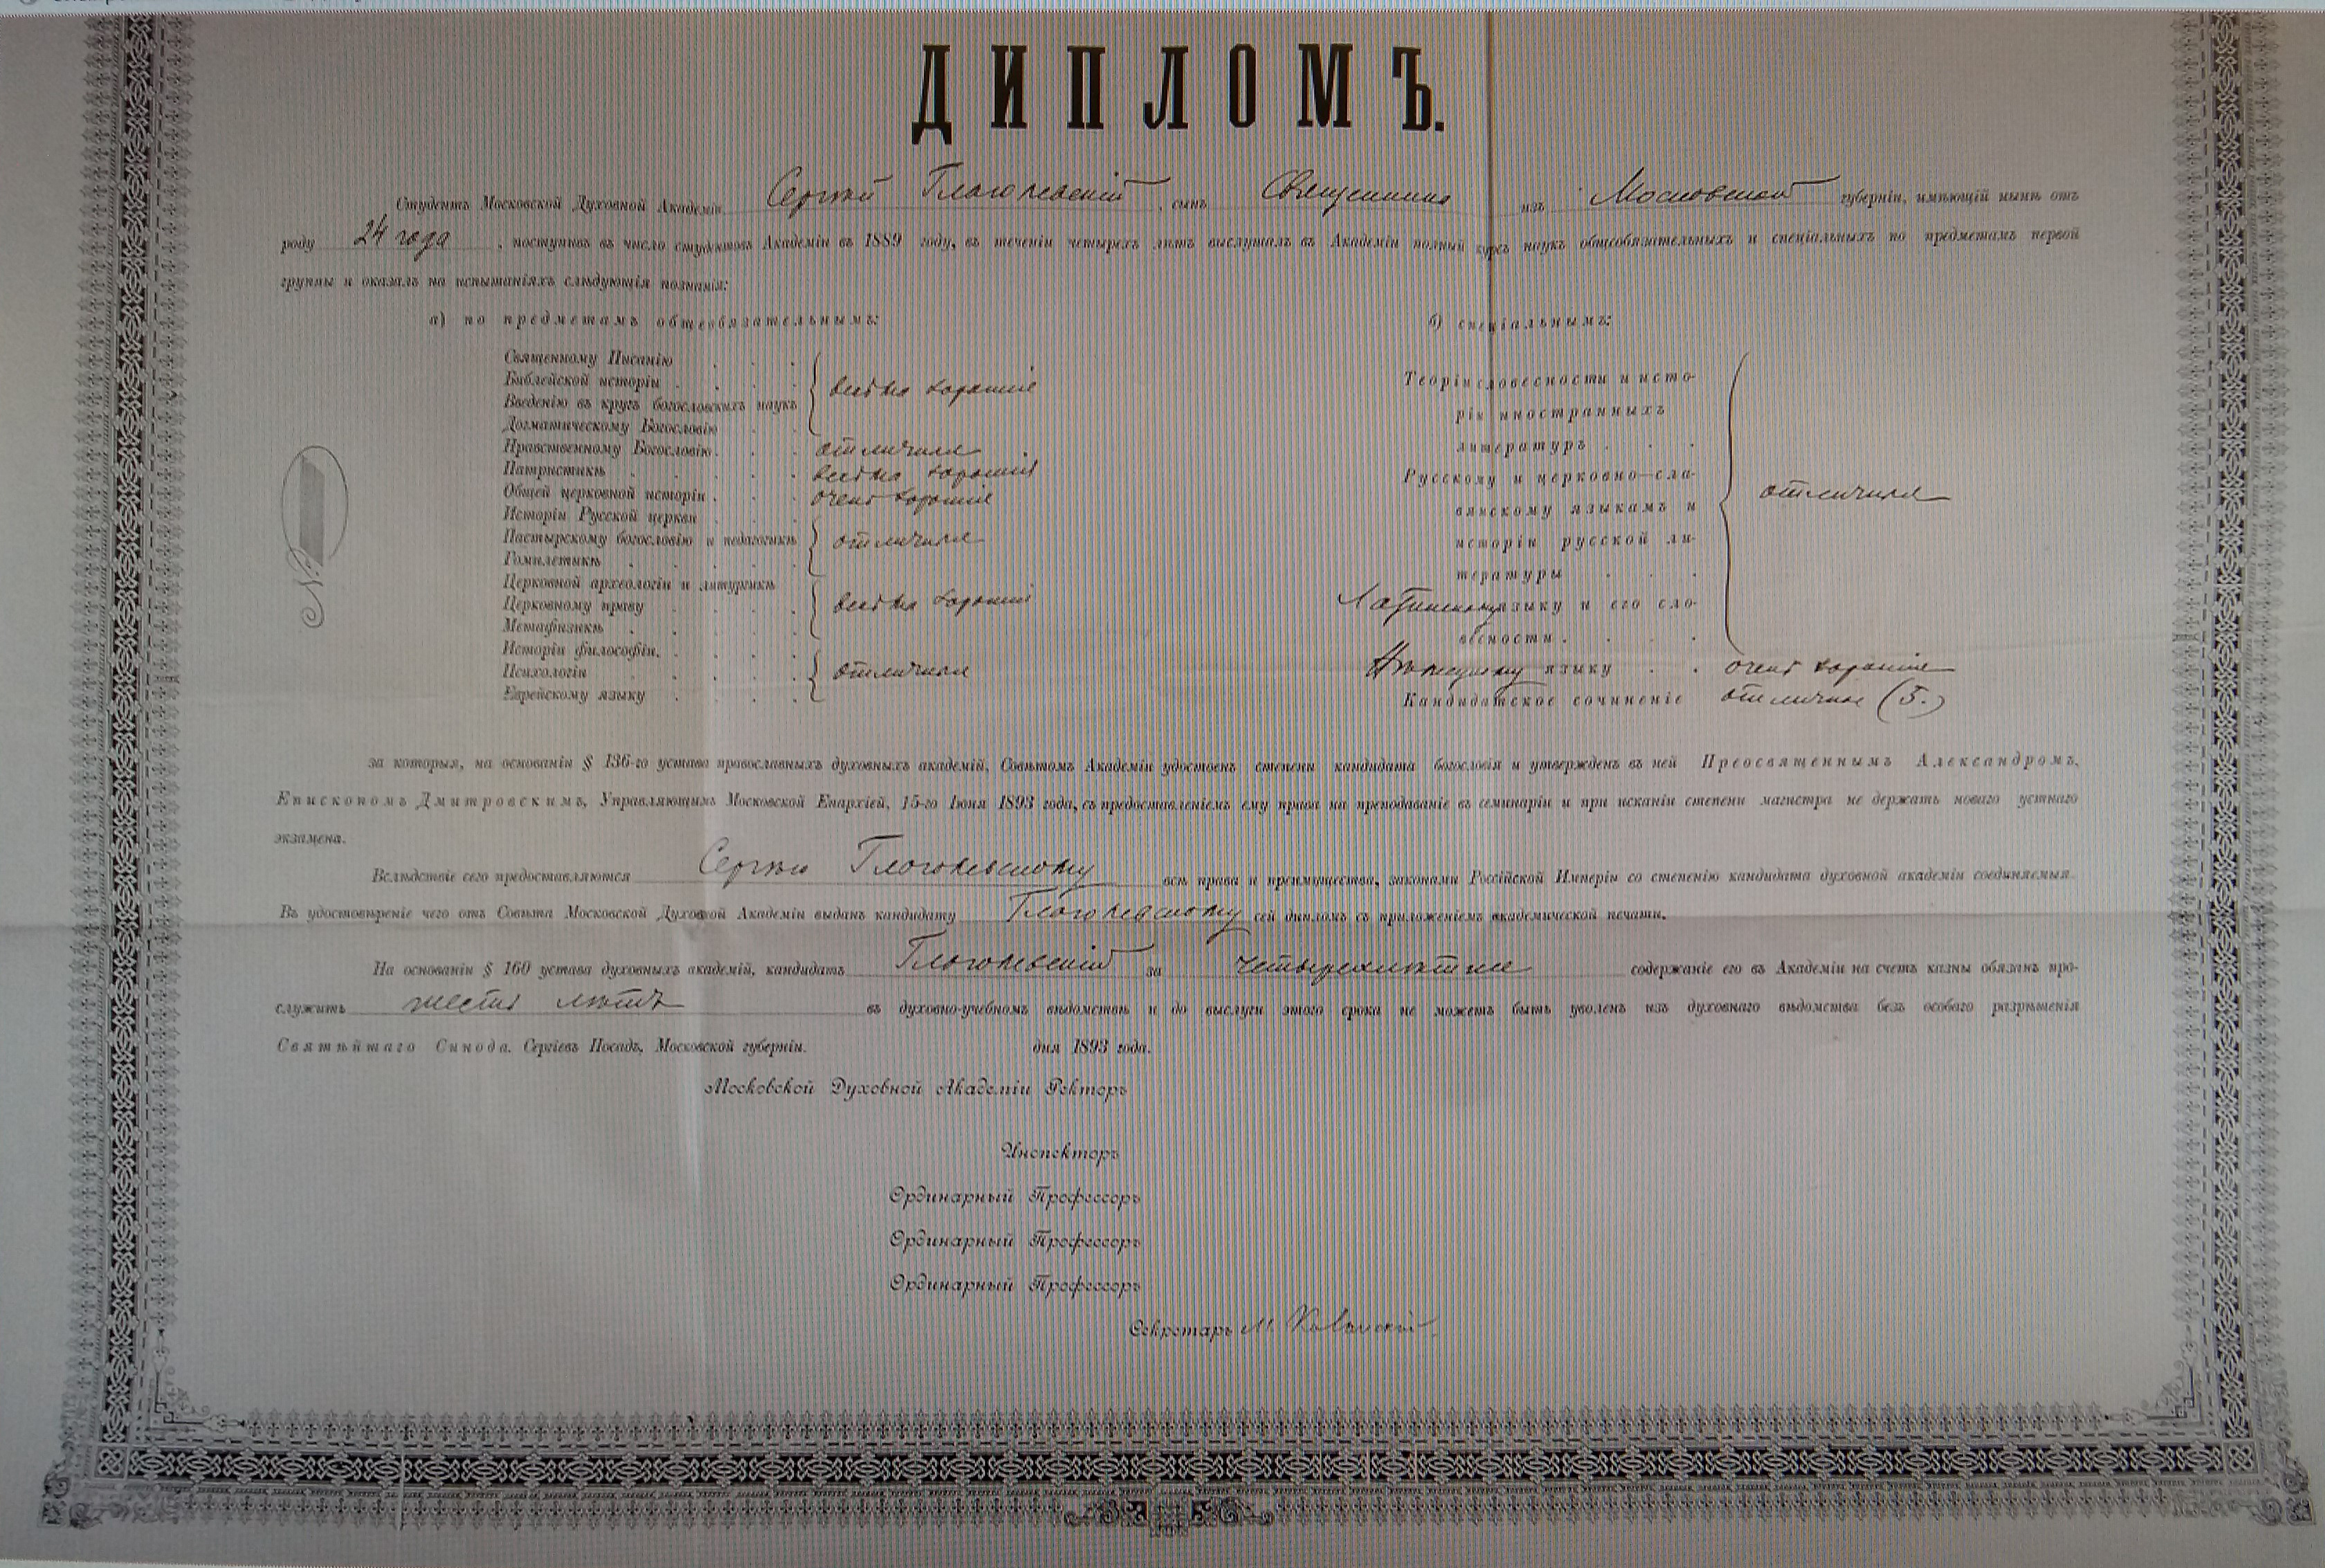 ДИПЛОМЪ.
Студентъ Московской Духовной Академіи Сергѣй Глаголевскій, сынъ Священника изъ Московской губерніи, имѣющій нынѣ отъ
роду 24 года, поступивъ въ число студентовъ Академіи въ 1889 году, въ теченіи четырехъ лѣтъ выслушалъ въ Академіи полный курсъ наукъ общеобязательныхъ и спеціальныхъ по предметамъ первой
группы и оказалъ на испытаніяхъ слѣдующія познанія:
а) по предметамъ общеобязательнымъ:
Священному Писанію
Библейской исторіи
Введенію въ кругъ богословскихъ наукъ
Догматическому Богословію
весьма хорошія
Нравственному Богословію отличныя
Патристикѣ весьма хорошія
Общей церковной исторіи очень хорошія
Исторіи Русской церкви
Пастырскому богословію и педагогикѣ
Гомилетикѣ
отличныя
Церковной археологіи и литургикѣ
Церковному праву
Метафизикѣ
весьма хорошія
Исторіи философіи
Психологіи
Еврейскому языку
отличныя
б) спеціальнымъ:
Теоріи словесности и исто-
ріи иностранныхъ
литературъ
Русскому и церковно-сла-
вянскому языкамъ и
исторіи русской ли-
тературы
Латинскому языку и его сло-
весности
отличныя
Нѣмецкому языку очень хорошія
Кандидатское сочиненіе отличное (5.)
№
за которыя, на основаніи § 136-го устава православныхъ духовныхъ академій, Совѣтомъ Академіи удостоенъ степени кандидата богословія и утвержденъ въ ней Преосвященнымъ Александромъ,
Епископомъ Дмитровскимъ, Управляющимъ Московской Епархіей, 15-го Іюня 1893 года, съ предоставленіемъ ему права на преподаваніе въ семинаріи и при исканіи степени магистра не держать новаго устнаго
экзамена.
Вслѣдствіе сего предоставляются Сергѣю Глаголевскому всѣ права и преимущества, законами Россійской Имперіи со степенію кандидата духовной академіи соединяемыя.
Въ удостовѣреніе чего отъ Совѣта Московской Духовной Академіи выданъ кандидату Глаголевскому сей дипломъ съ приложеніемъ академической печати.
На основаніи § 160 устава духовныхъ академій, кандидатъ Глаголевскій за четырехлѣтнее содержаніе его въ Академіи на счетъ казны обязанъ про-
служить шесть лѣтъ въ духовно-учебномъ вѣдомствѣ и до выслуги этого срока не можетъ быть уволенъ изъ духовнаго вѣдомства безъ особаго разрѣшенія
Святѣйшаго Синода. Сергіевъ Посадъ, Московской губерніи. дня 1893 года.
Московской Духовной Академіи Ректоръ
Инспекторъ
Ординарный Профессоръ
Ординарный Профессоръ
Ординарный Профессоръ
Секретарь М.